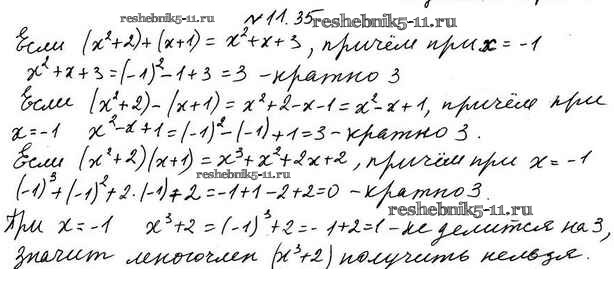 №11.35 reshebnik5-11.ru
www.reshebnik5-11.ru
Если (x²+2)+(x+1) = x²+x+3, причём при x=-1
x²+x+3=(-1)²-1+3=3 - кратно 3
Если (x²+2)-(x+1)=x²+2-x-1=x²-x+1, причём при
x=-1 x²-x+1=(-1)²-(-1)+1=3 - кратно 3.
Если (x²+2)(x+1)=x³+x²+2x+2, причём при x=-1
www.reshebnik5-11.ru
(-1)³+(-1)²+2·(-1)+2=-1+1-2+2=0 - кратно 3.
reshebnik5-11.ru
При x=-1 x³+2=(-1)³+2=-1+2=1 - не делится на 3,
значит многочлен (x³+2) получить нельзя.